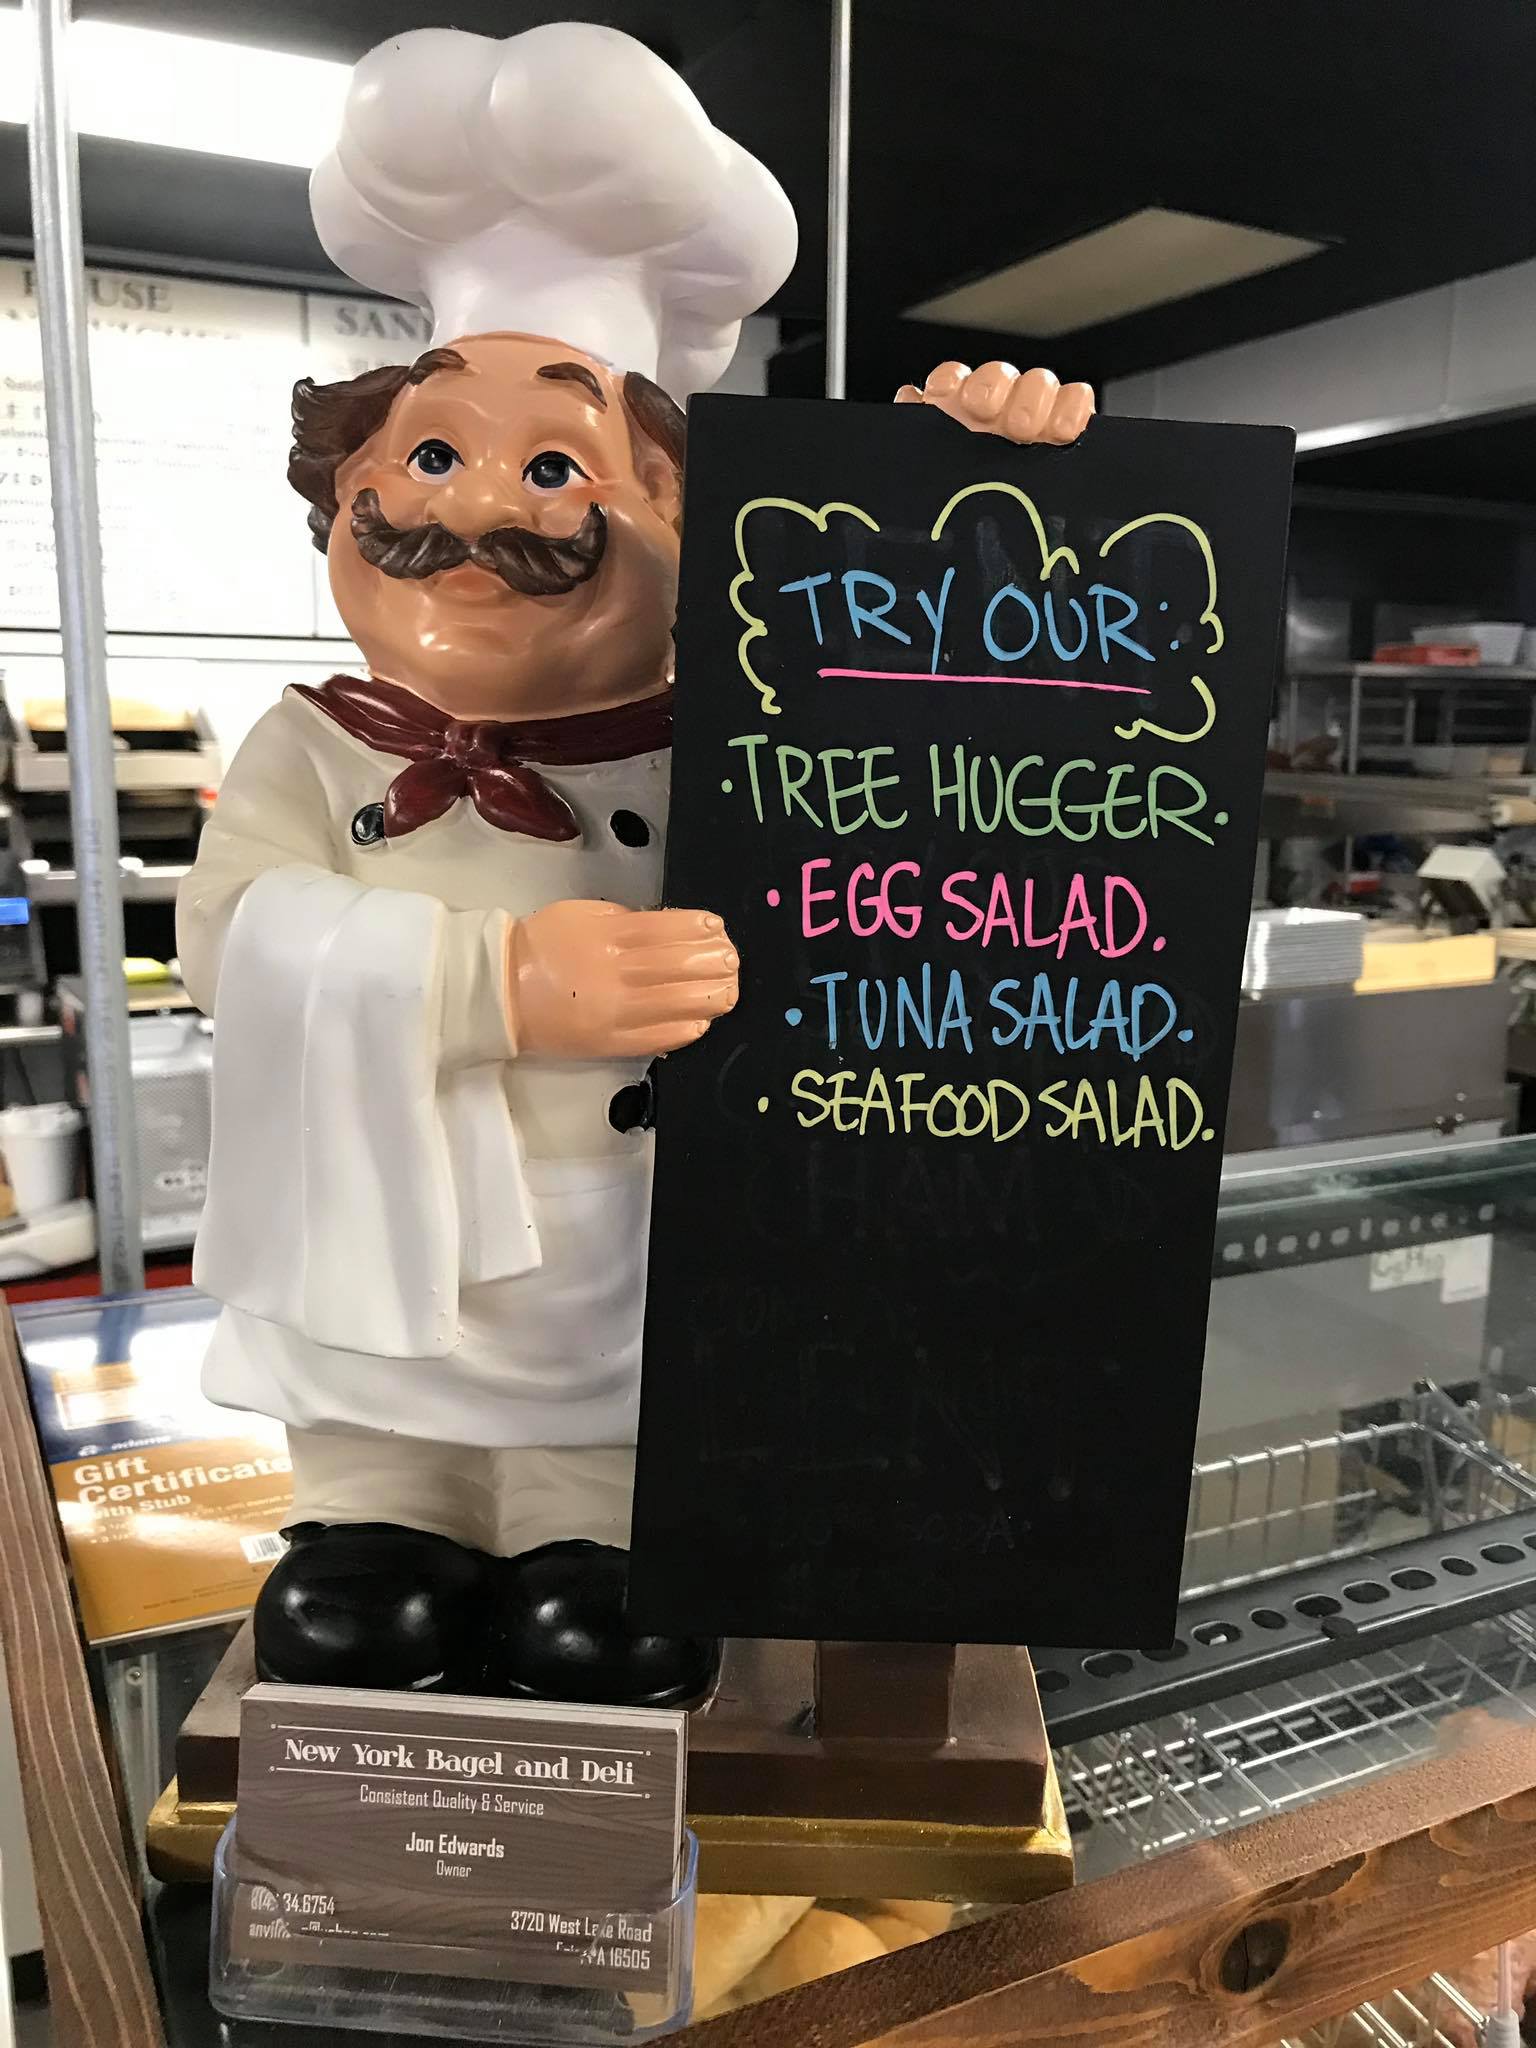 TRY OUR:
·TREE HUGGER.
· EGG SALAD.
· TUNA SALAD.
· SEAFOOD SALAD.
Gift
Certificate
with Stub
New York Bagel and Deli
Consistent Quality & Service
Jon Edwards
Owner
34.6754
3720 West Lake Road
16505